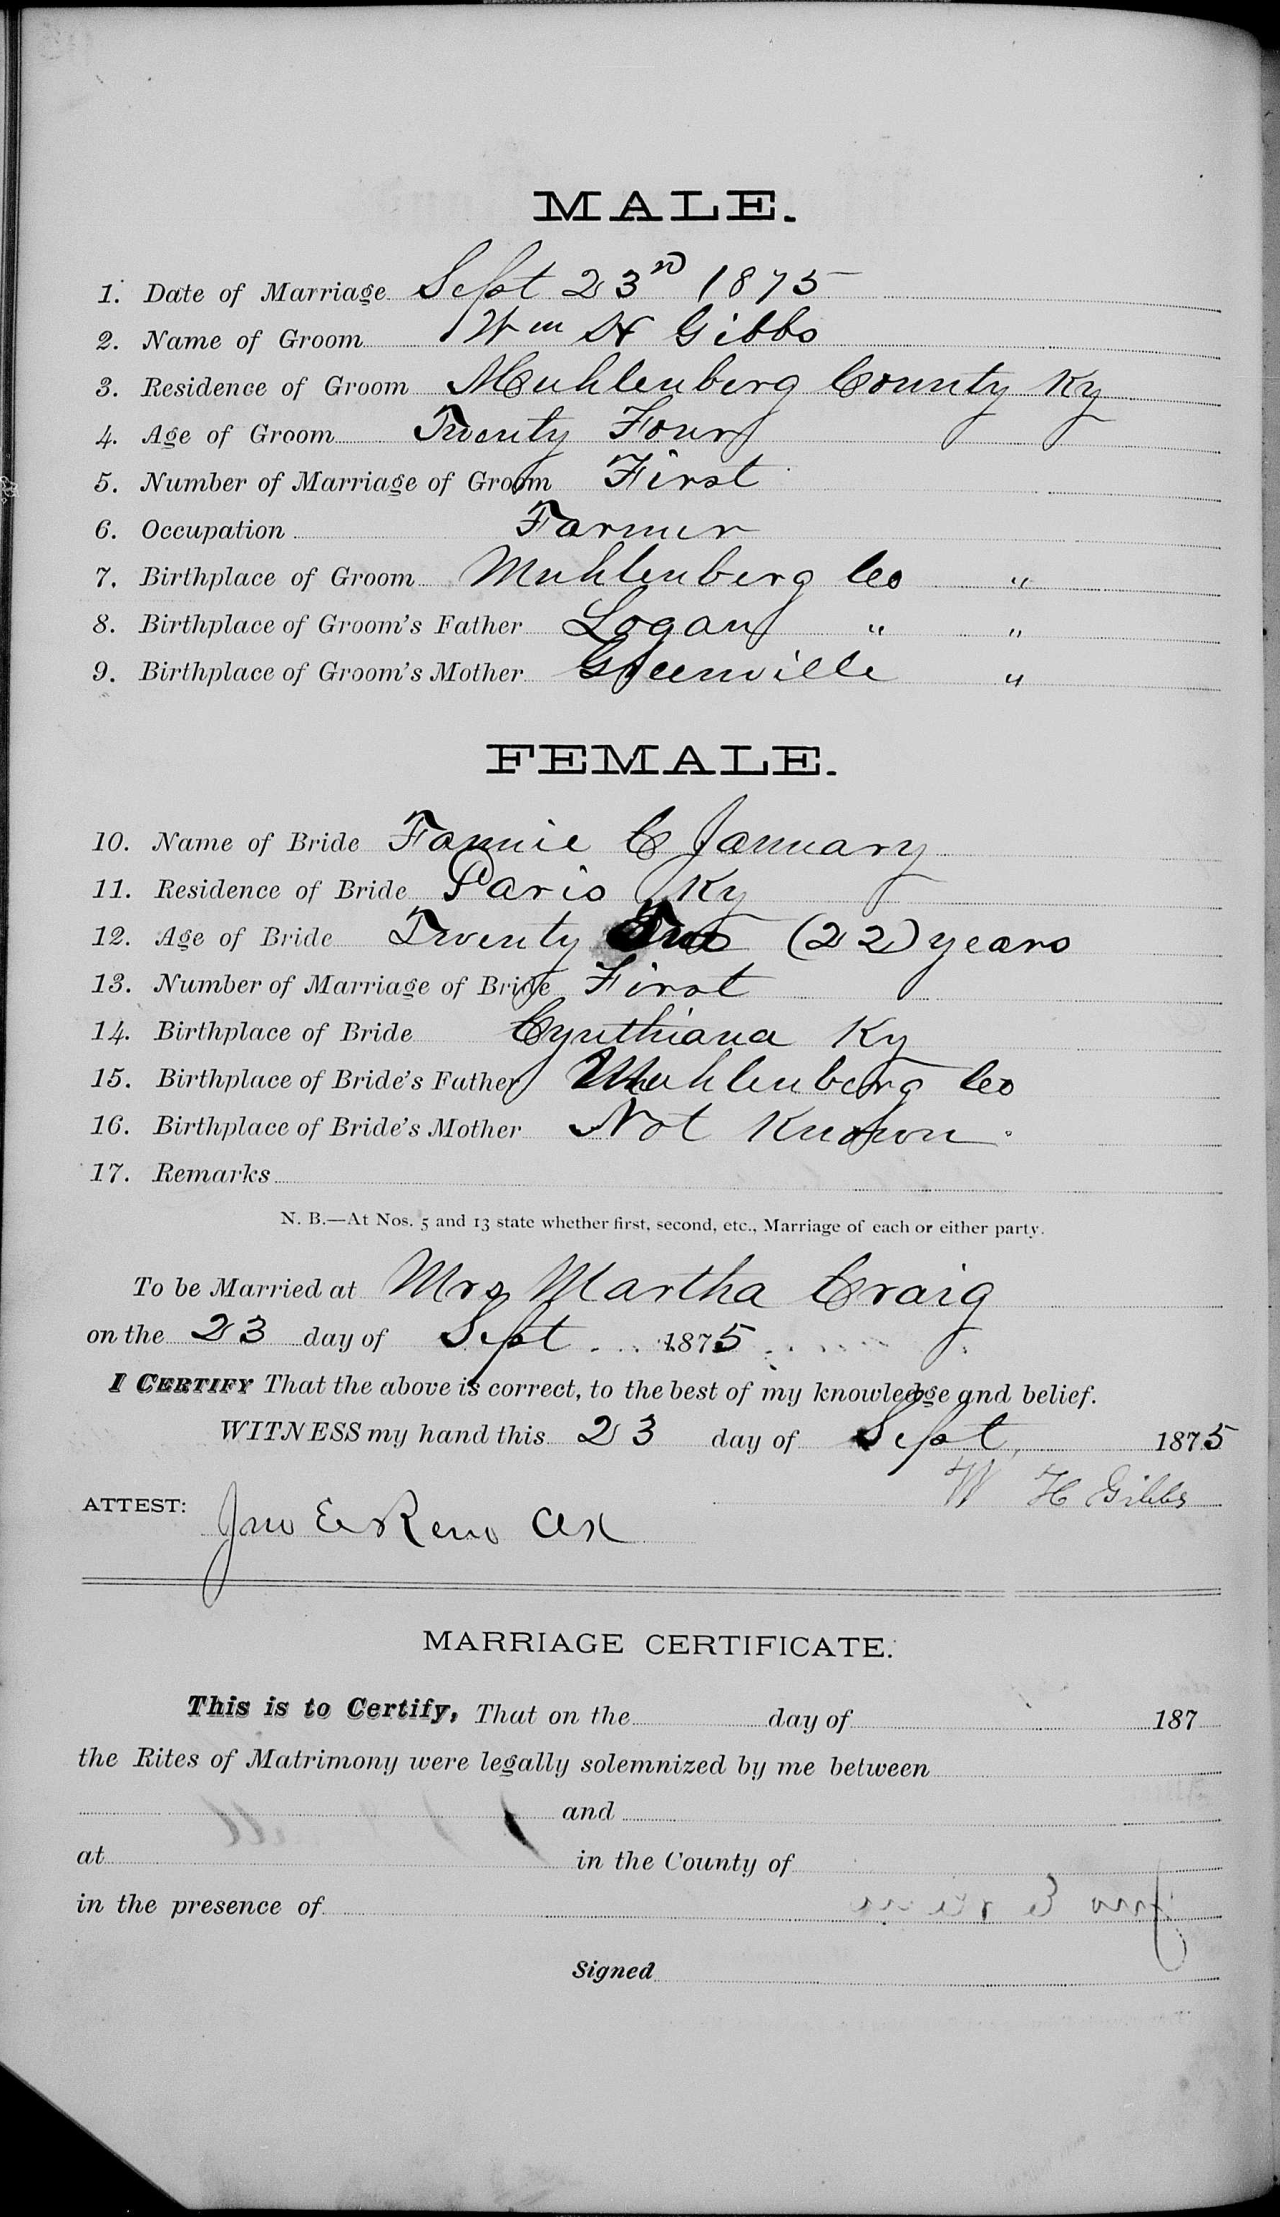 MALE.
1. Date of Marriage Sept 23rd 1875
2. Name of Groom Wm H Gibbs
3. Residence of Groom Muhlenberg County Ky
4. Age of Groom Twenty Four
5. Number of Marriage of Groom First
6. Occupation Farmer
7. Birthplace of Groom Muhlenberg Co "
8. Birthplace of Groom's Father Logan " "
9. Birthplace of Groom's Mother Greenville "
FEMALE.
10. Name of Bride Fannie C January
11. Residence of Bride Paris Ky
12. Age of Bride Twenty Two (22) years
13. Number of Marriage of Bride First
14. Birthplace of Bride Cynthiana Ky
15. Birthplace of Bride's Father Muhlenberg Co
16. Birthplace of Bride's Mother Not Known.
17. Remarks
N. B.—At Nos. 5 and 13 state whether first, second, etc., Marriage of each or either party.
To be Married at Mrs Martha Craig
on the 23 day of Sept 1875
I CERTIFY That the above is correct, to the best of my knowledge and belief.
WITNESS my hand this 23 day of Sept, 1875
W H Gibbs
ATTEST: Jno E Reno
MARRIAGE CERTIFICATE.
This is to Certify, That on the day of 187
the Rites of Matrimony were legally solemnized by me between
and
at in the County of
in the presence of
Signed